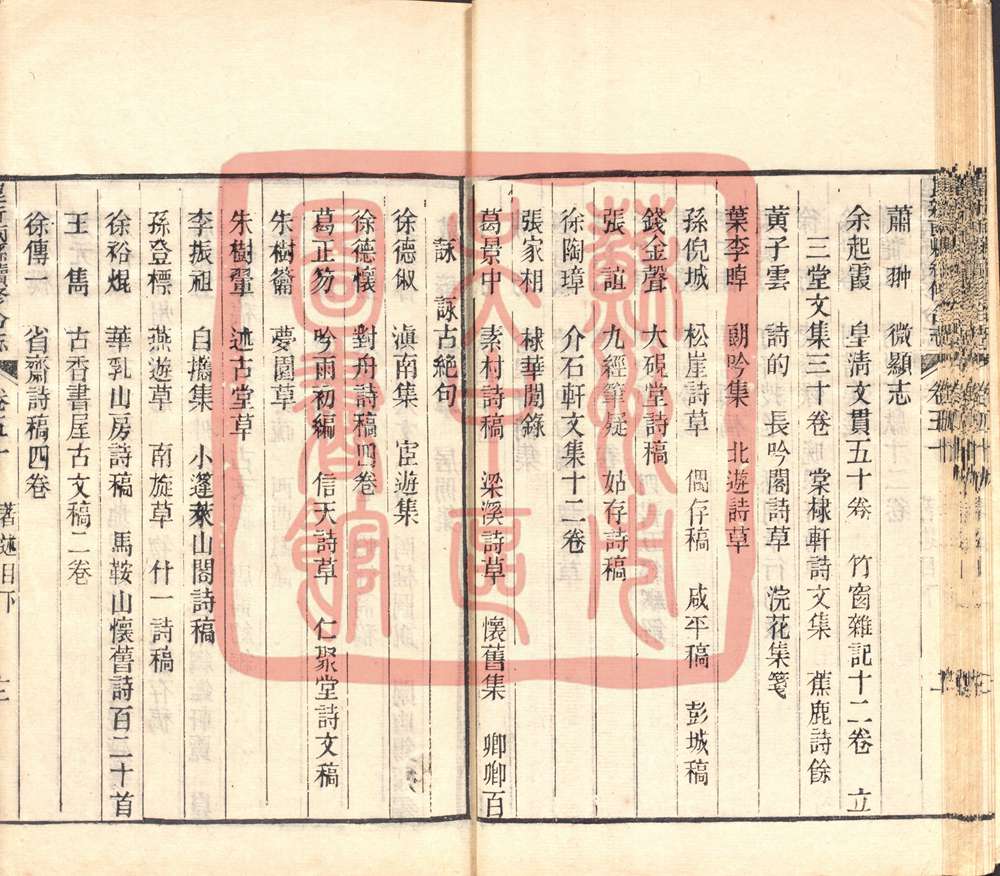 蕭翀　微顯志
余起霞　皇清文貫五十卷　竹窗雜記十二卷　立
三堂文集三十卷　棠棣軒詩文集　蕉鹿詩餘
黃子雲　詩的　長吟閣詩草　浣花集箋
葉李暲　閒吟集　北遊詩草
孫倪城　松崖詩草　偶存稿　咸平稿　彭城稿
錢金聲　大硯堂詩稿
張誼　九經筆疑　姑存詩稿
徐陶璋　介石軒文集十二卷
張家相　棣華閒錄
葛景中　素村詩稿　梁溪詩草　懷舊集　卿卿百
詠　詠古絕句
徐德俶　滇南集　宦遊集
徐德懷　對舟詩稿四卷
葛正笏　吟雨初編　信天詩草　仁聚堂詩文稿
朱樹籥　夢園草
朱樹翬　述古堂草
李振祖　白鷴集　小蓬萊山閣詩稿
孫登標　燕遊草　南旋草　什一詩稿
徐裕焜　華乳山房詩稿　馬鞍山懷舊詩百二十首
王雋　古香書屋古文稿二卷
徐傳一　省齋詩稿四卷
卷五十　著述目下　二
蘇州市
文中區
圖書館